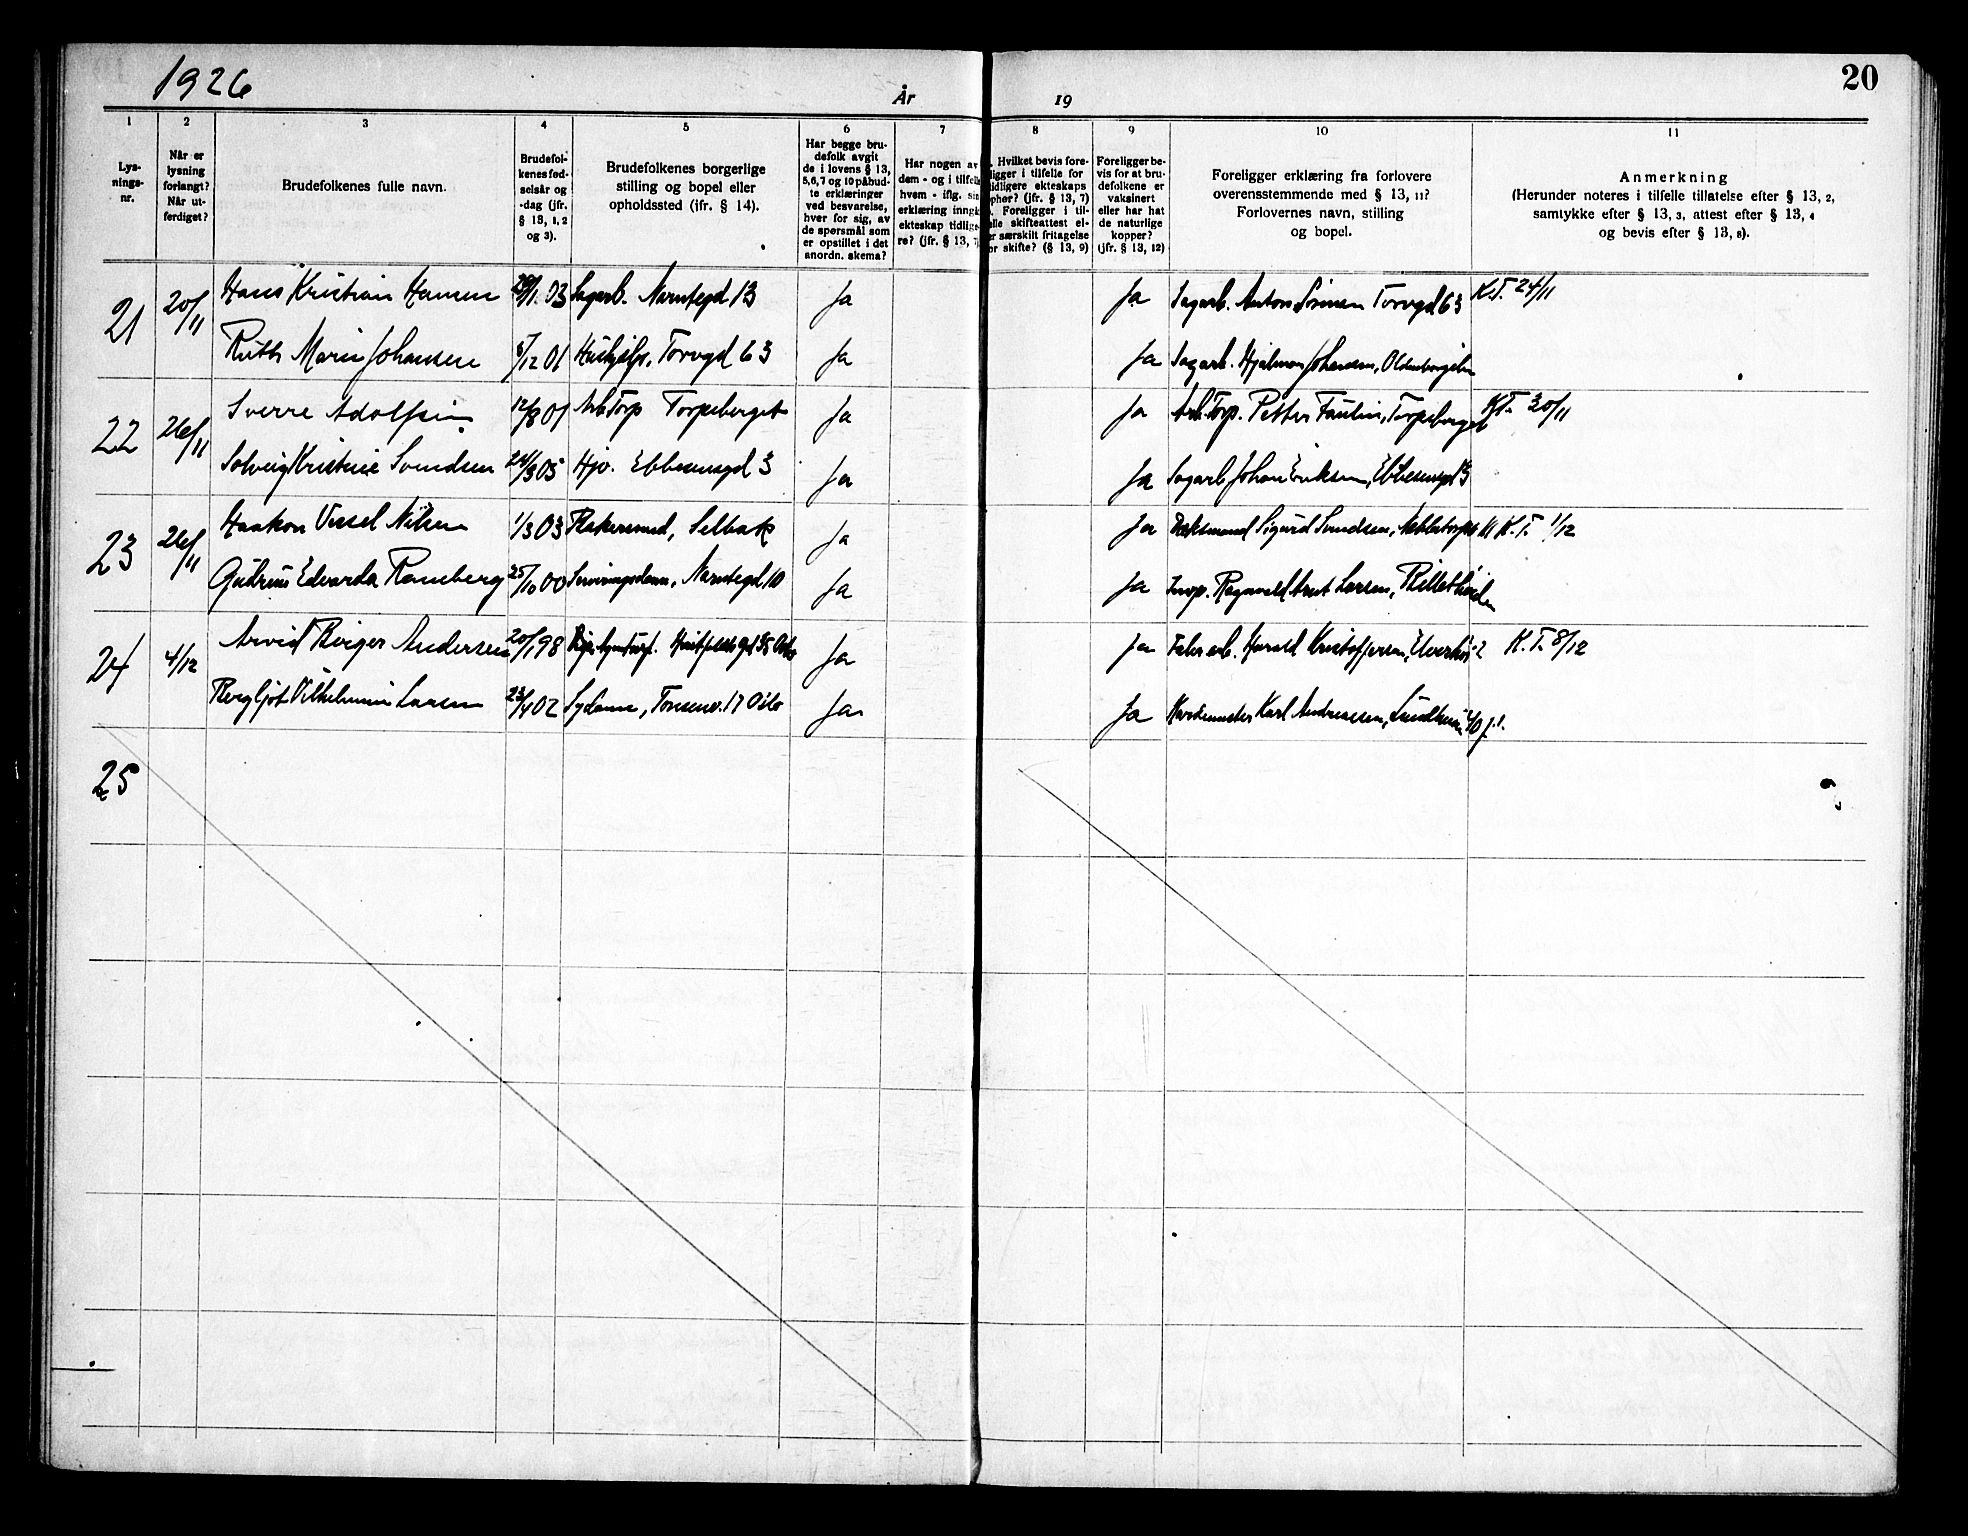 1926
År
19
20
1
2
3
4
5
6
7
8
9
10
11
Lys-
nings-
nr.
Når er
lysning
forlangt?
Når ut-
ferdiget?
Brudefolkenes fulle navn.
Brudefol-
kenes fød-
selsår og
-dag (jfr.
§ 13, 1, 2
og 3).
Brudefolkenes borgerlige
stilling og bopel eller
opholdssted (ifr. § 14).
Har begge bru-
defolk avgit
de i lovens § 13,
5, 6, 7 og 10 påbud-
te erklæringer
ved besvarelse,
hver for sig, av
de spørsmål som
er opstillet i det
anordn. skema?
Har nogen av
dem - og i tilfelle
hvem - iflg. sin
erklæring inngk
ekteskap tidlige-
re? (jfr. § 13, 7)
Hvilket bevis fore-
ligger i tilfelle for
tidligere ekteskaps
ophør? (jfr. § 13, 7)
Foreligger i til-
elle skifteattest el-
er særskilt fritagelse
for skifte? (§ 13, 9)
Foreligger be-
vis for at bru-
defolkene er
vaksinert
eller har hat
de naturlige
kopper?
(jfr. § 13, 12)
Foreligger erklæring fra forlovere
overensstemmende med § 13, 11?
Forlovernes navn, stilling
og bopel.
Anmerkning
(Herunder noteres i tilfelle tillatelse efter § 13, 2,
samtykke efter § 13, 3, attest efter § 13, 4
og bevis efter § 13, 8).
21 20/11 Hans Kristian Hansen /1.03 Sagarb. Narntegd 13 Ja Ja Sagarb. Anton Torvgd 63 K.T. 24/11
Ruth Marie Johansen /12 01 Torvgd 63 Ja Ja Sagarb. Hjalmar Johansen,
22 26/11 Sverre Adolfsen 12/8 01 Arb Torp Torpeberget Ja Ja Arb. Torp. Petter Paulin, Torpeberget K.T. 30/11
Solveig Kristine Svendsen 24/3 05 Hjv. Ebbesensgd 3 Ja Ja Sagarb Johan Eriksen, Ebbesensgd 3
23 26/11 Haakon Vessel Nilsen 1/3 03 Selbak Ja Ja Sigurd Svendsen, K.T. 1/12
Gudrun Edvarda Ramberg 25/10 00 Serveringsdame, Narntegd 10 Ja Ja Ragnvald Arnt Larsen,
24 4/12 Arvid Birger Andersen 20/1 98 Huitfeldtsgd Oslo Ja Ja Harald Kristoffersen, K.T. 8/12
Bergljot Vilhelmine Larsen 23/4 02 Sydame, Tonsenv. 17 Oslo Ja Ja Karl Andreassen,
25